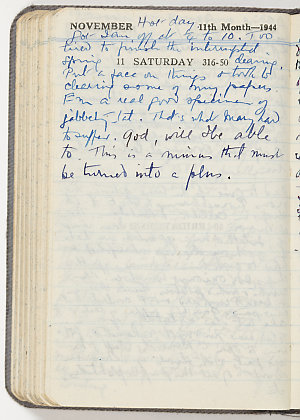 Hot day
NOVEMBER 11th Month—1944
Got Ian off at 1/4 to 10. Too
tired to finish the interrupted
11 SATURDAY 316-50
spring cleaning.
Put a face on things & took to
clearing some of my papers.
I'm a real good specimen of
flabbety - fat. That's what Mary had
to suffer. God, will I be able
to. This is a minus that must
be turned into a plus.